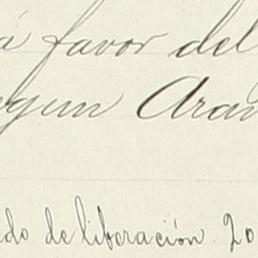 á favor del
egun Aran
do de liberación. 20